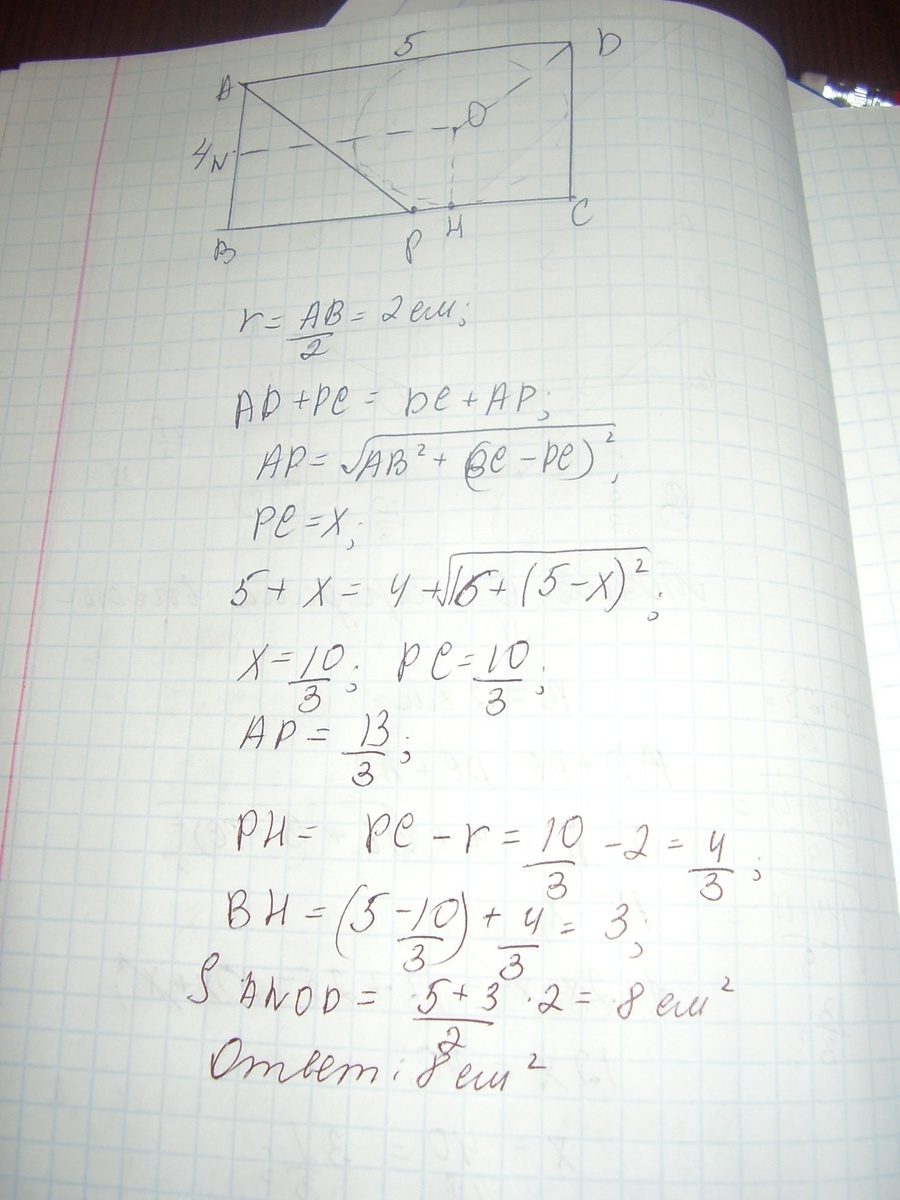 5
A D
O
4 N
B P H C
r = AB/2 = 2 см;
AD + PC = DC + AP;
AP = √(AB² + (BC - PC)²);
PC = x;
5 + x = 4 + √(16 + (5 - x)²);
x = 10/3; PC = 10/3;
AP = 13/3;
PH = PC - r = 10/3 - 2 = 4/3;
BH = (5 - 10/3) + 4/3 = 3;
S ANOD = (5 + 3)/2 · 2 = 8 см²
Ответ: 8 см²